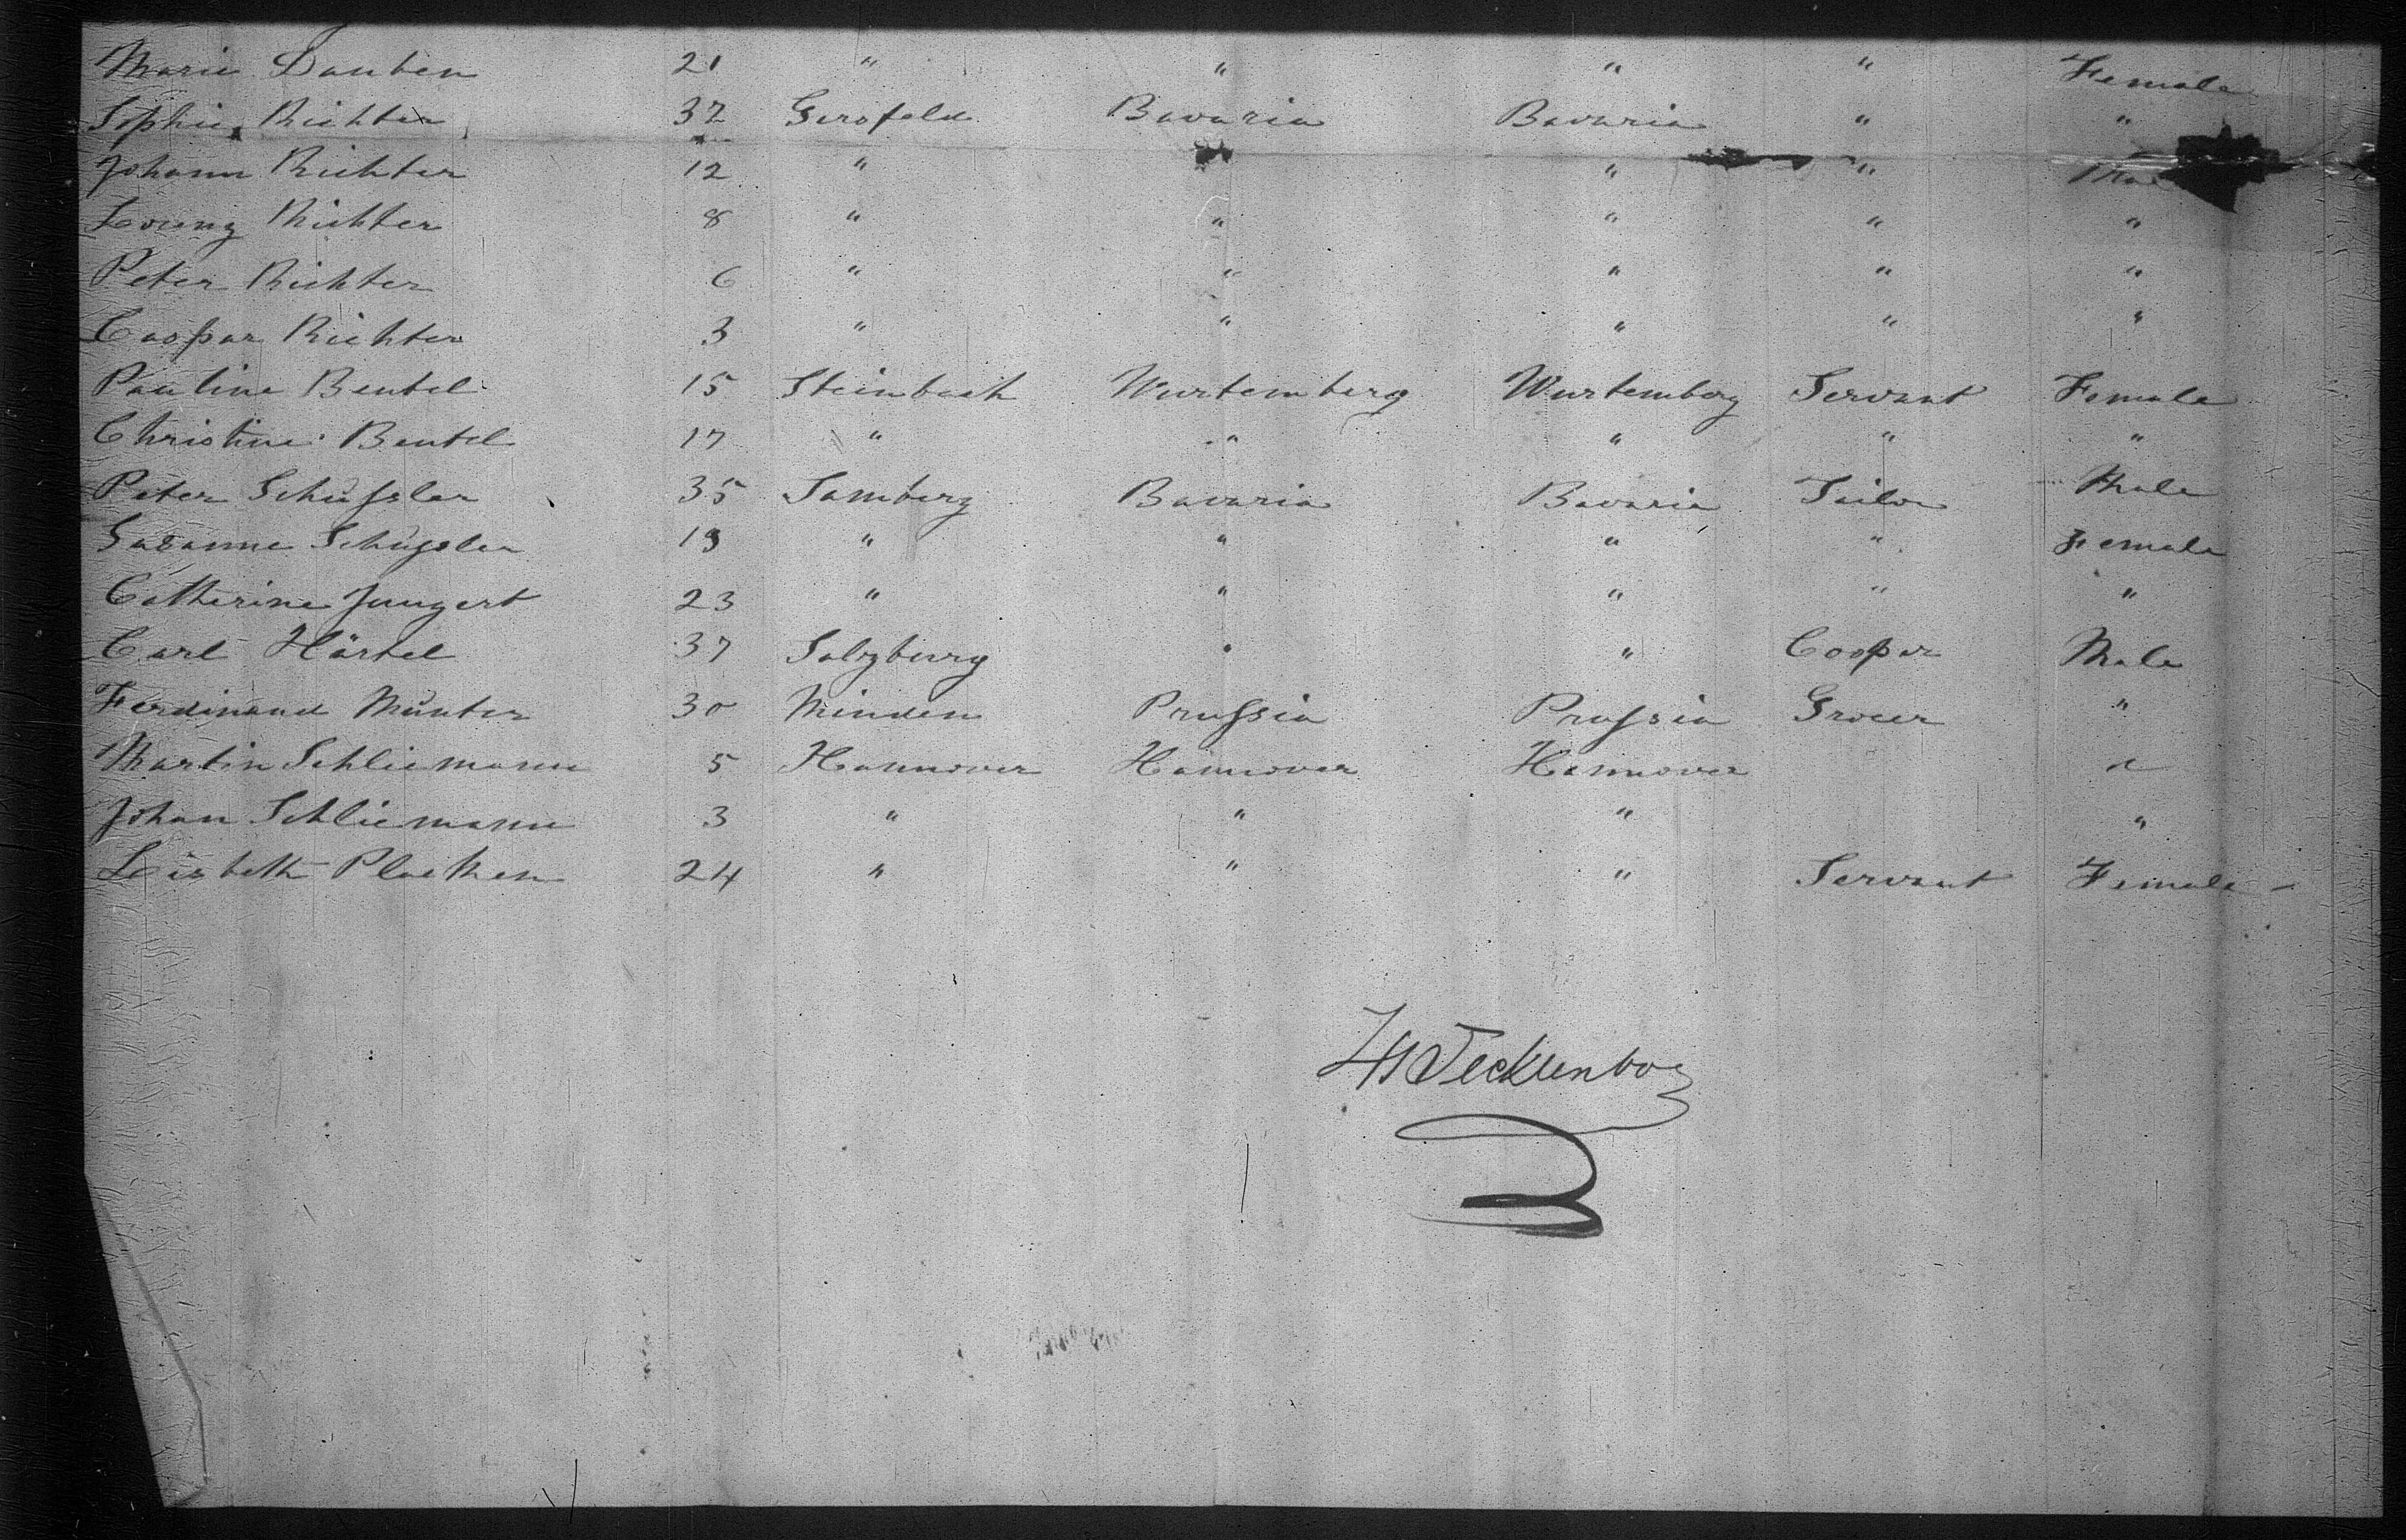 Marie Dauben 21 " " " " Female
Sophie Richter 32 Gersfeld Bavaria Bavaria " "
Johann Richter 12 " " "
Lorenz Richter 8 " " " " "
Peter Richter 6 " " " " "
Caspar Richter 3 " " " " "
Pauline Beutel 15 Steinbach Wurtemberg Wurtemberg Servant Female
Christine Beutel 17 " " " " "
Peter Schüssler 35 Samberg Bavaria Bavaria Tailor Male
Susanne Schüssler " " " " Female
Catherine Jungert 23 " " " " "
Carl Härtel 37 Salzburg " " Cooper Male
Ferdinand Münter 30 Minden Prussia Prussia Grocer "
Martin Schliemann 5 Hannover Hannover Hannover "
Johan Schliemann 3 " " " "
Lisbeth 24 " " " Servant Female
Tecklenborg